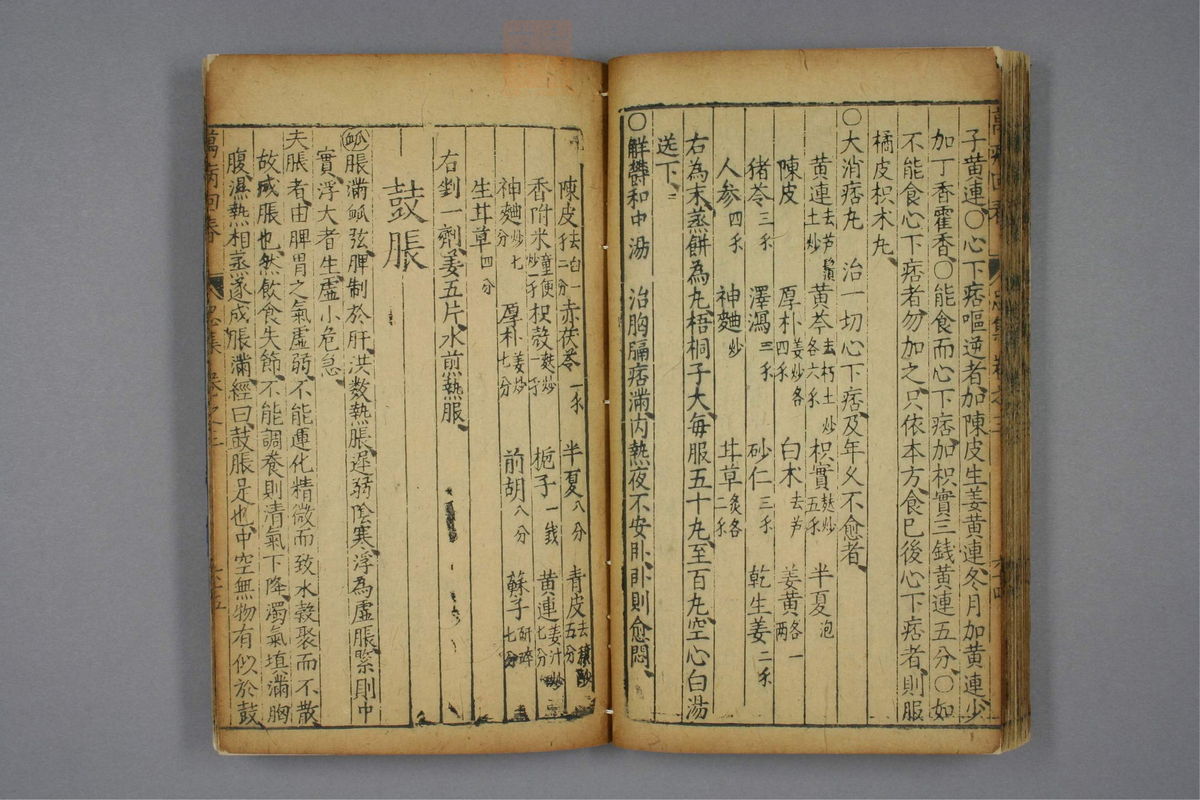 子黄連○心下痞嘔逆者加陳皮生姜黄連冬月加黄連少
加丁香藿香○能食而心下痞加枳實三錢黄連五分○如
不能食心下痞者勿加之只依本方食已後心下痞者則服
橘皮枳术丸
○大消痞丸 治一切心下痞及年久不愈者
黄連去芦鬚土炒 黄芩去朽土炒各六禾 枳實麸炒五禾 半夏泡
陳皮 厚朴姜炒各四禾 白术去芦 姜黄各一兩
猪苓三禾 澤瀉二禾 砂仁三禾 乾生姜二禾
人参四禾 神麯炒 甘草炙各二禾
右為末蒸餅為丸梧桐子大每服五十丸至百丸空心白湯
送下
○解鬱和中湯 治胸膈痞滿内熱夜不安卧卧則愈悶
萬病回春 忽集 卷之三 六十四
陳皮去白一禾二分 赤茯苓一禾 半夏八分 青皮去穰醋炒五分
香附米童便炒一禾 枳殻麸炒一禾 梔子一錢 黄連姜汁炒七分
神麯炒七分 厚朴姜炒七分 前胡八分 蘇子研碎七分
生甘草四分
右剉一劑姜五片水煎熱服
鼓脹
脈脹滿脈弦脾制於肝洪数熱脹遅弱隂寒浮為虚脹緊則中
實浮大者生虚小危急
夫脹者由脾胃之氣虚弱不能運化精微而致水穀聚而不散
故成脹也然飲食失節不能調養則清氣下降濁氣填滿胸
腹濕熱相蒸遂成脹滿經曰鼓脹是也中空無物有似於鼓
萬病回春 忽集 卷之三 六十五